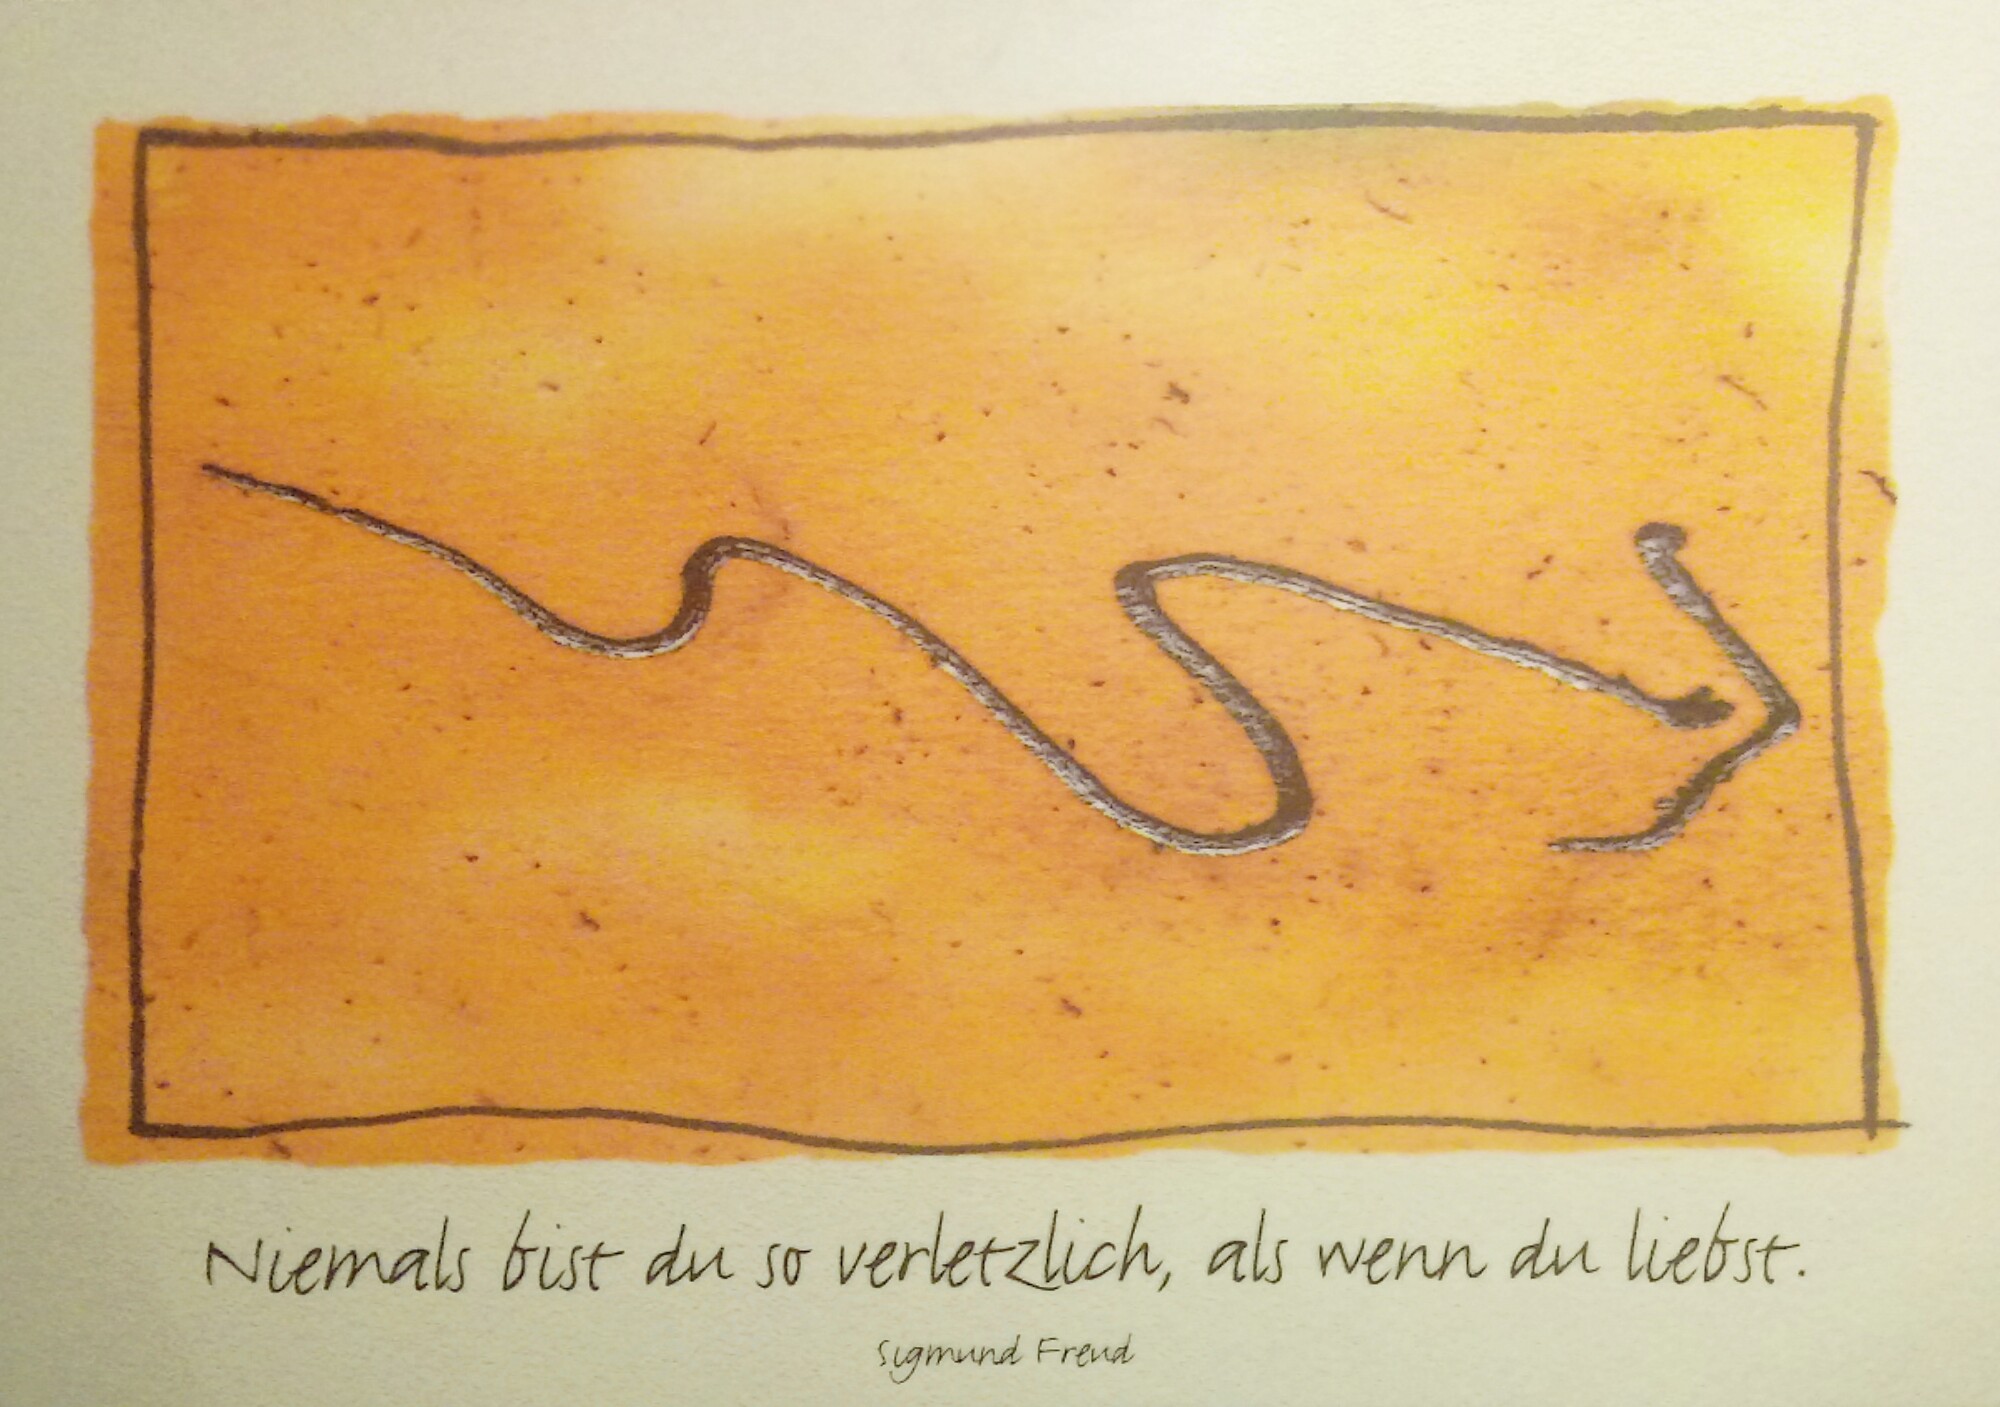 Niemals bist du so verletzlich, als wenn du liebst.
Sigmund Freud